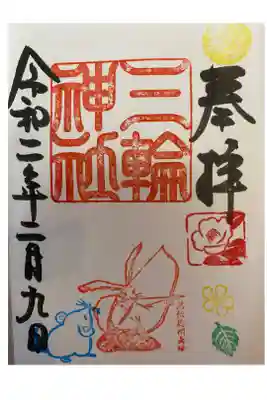 奉拝
三輪
神社
令和二年十二月九日